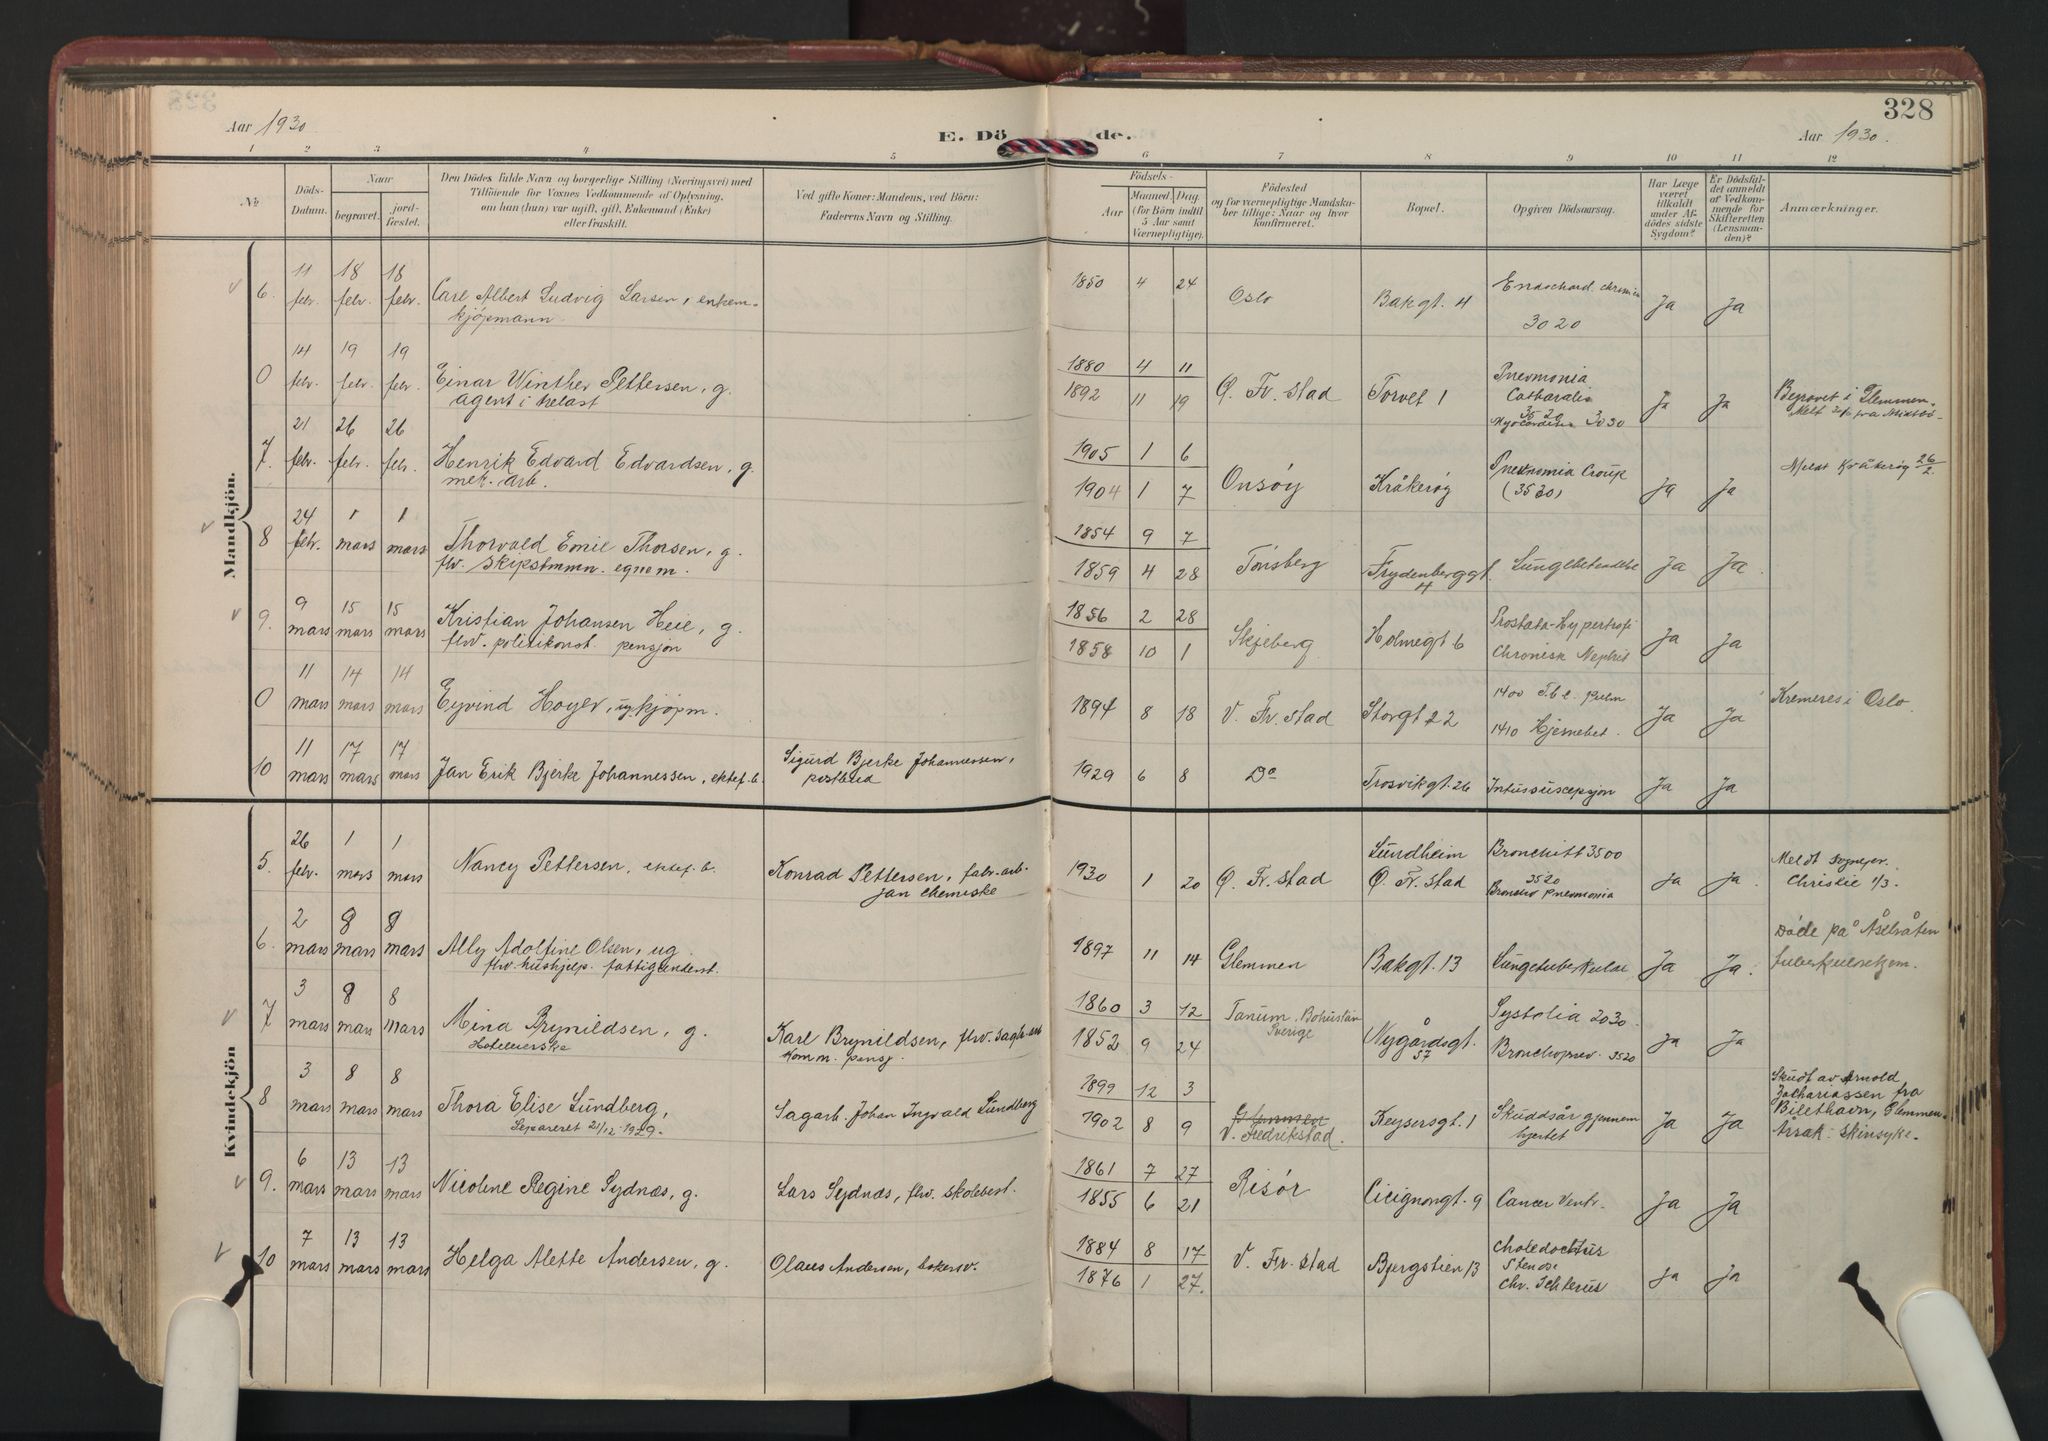 328
Aar 1930.
E. Dö
de.
Aar 1930.
1 2 3 4 5 6 7 8 9 10 11 12
No
Döds-
Datum.
Naar
begravet.
jord-
fæstet.
Den Dödes fulde Navn og borgerlige Stilling (Næringsvei) med
Tilföiende for Voxnes Vedkommende af Oplysning,
om han (hun) var ugift, gift, Enkemand (Enke)
eller fraskilt.
Ved gifte Koner: Mandens, ved Börn:
Faderens Navn og Stilling.
Födsels-
Aar
Maaned. Dag.
(for Börn indtil
5 Aar samt
Værnepligtige).
Födested
og for værnepligtige Mandska-
ber tillige: Naar og hvor
konfirmeret.
Bopæl.
Opgiven Dödsaarsag.
Har Læge
været
tilkaldt
under Af-
dödes sidste
Sygdom?
Er Dödsfal-
det anmeldt
af Vedkom-
mende for
Skifteretten
(Lensman-
den)?
Anmærkninger.
Mandkjön.
6. 11 febr. 18 febr. 18 febr. Carl Albert Ludvig Larsen, enkem.
kjøpmann
1850 4 24 Oslo Bakgt. 4 3020 Ja Ja
0 14 febr. 19 febr. 19 febr. Einar Winther Pettersen, g.
agent i
1880 4 11
1892 11 19 Ø. Fr. stad Torvet 1 Pneumonia
Catharalis
3520
Myocarditis 3030 Ja Ja Begravet i Glemmen.
7. 21 febr. 26 febr. 26 febr. Henrik Edvard Edvardsen, g.
mek. arb.
1905 1 6
1904 1 7 Onsøy Kråkerøy Pneumonia Croup
(3520) Ja Ja Meldt Kråkerøy 26/2.
8 24 febr. 1 mars 1 mars Thorvald Emil Thorsen, g.
flv. skipstmmn. egnem.
1854 9 7
1859 4 28 Tønsberg Frydenberggt.
4 Lungebetendelse Ja Ja
9. 9 mars 15 mars 15 mars Kristian Johansen Heie, g.
flv. politikonst. pensjon
1856 2 28
1858 10 1 Skjeberg Holmegt 6 Prostata-Hypertrofi
Chronisk Nephrit Ja Ja
0 11 mars 14 mars 14 mars Eyvind Hoyer, ug. kjøpm.
1894 8 18 V. Fr. stad Storgt 22 1400 Tbc. pulm
1410 Ja Ja Kremeres i Oslo.
10 11 mars 17 mars 17 mars Jan Erik Bjerke Johannessen, ektef. b. Sigurd Bjerke Johannessen,
postbud
1929 6 8 Do Trosvikgt. 26 Intussuscepsjon Ja Ja
Kvindekjön
5. 26 febr. 1 mars 1 mars Nancy Pettersen, ektef. b. Konrad Pettersen, fabr. arb.
1930 1 20 Ø. Fr. stad Lundheim
Ø. Fr. stad Bronchitt 3500
3520
Broncho pneumonia Ja Ja Meldt sognepr.
Christie 1/3.
6. 2 mars 8 mars 8 mars Ally Adolfine Olsen, ug.
flv. hushjelp. fattigunderst.
1897 11 14 Glemmen Bakgt. 13 Lungetuberkulose Ja Ja Døde på
tuberkulosehjem.
7 3 mars 8 mars 8 mars Mina Brynildsen, g. Karl Brynildsen, flv. sagb. arb
komm. pensj.
1860 3 12
1852 9 24 Tanum, Bohuslän
Sverige Nygårdsgt.
57 2030
Bronchopneu. 3520 Ja Ja
8 3 mars 8 mars 8 mars Thora Elise Lundberg,
Separeret 21/12 1929. Sagarb. Johan Ingvald Lundberg
1899 12 3
1902 8 9 Glemmen
V. Fredrikstad. Keysersgt. 1 Skuddsår gjennem
hjertet Ja Ja Skudt av Arnold
Zachariassen fra
Glemmen.
Årsak: skinsyke.
9. 6 mars 13 mars 13 mars Nicoline Regine Sydnæs, g. Lars Sydnæs, flv. skolebest.
1861 7 27
1855 6 21 Risör Cicignongt. 9 Cancer Ventr. Ja Ja
10 7 mars 13 mars 13 mars Helga Alette Andersen, g. Olaus Andersen, bakersv.
1884 8 17
1876 1 27. V. Fr. stad Bjergstien 13 Choledochus
Stenose
Chr. Ichterus Ja Ja